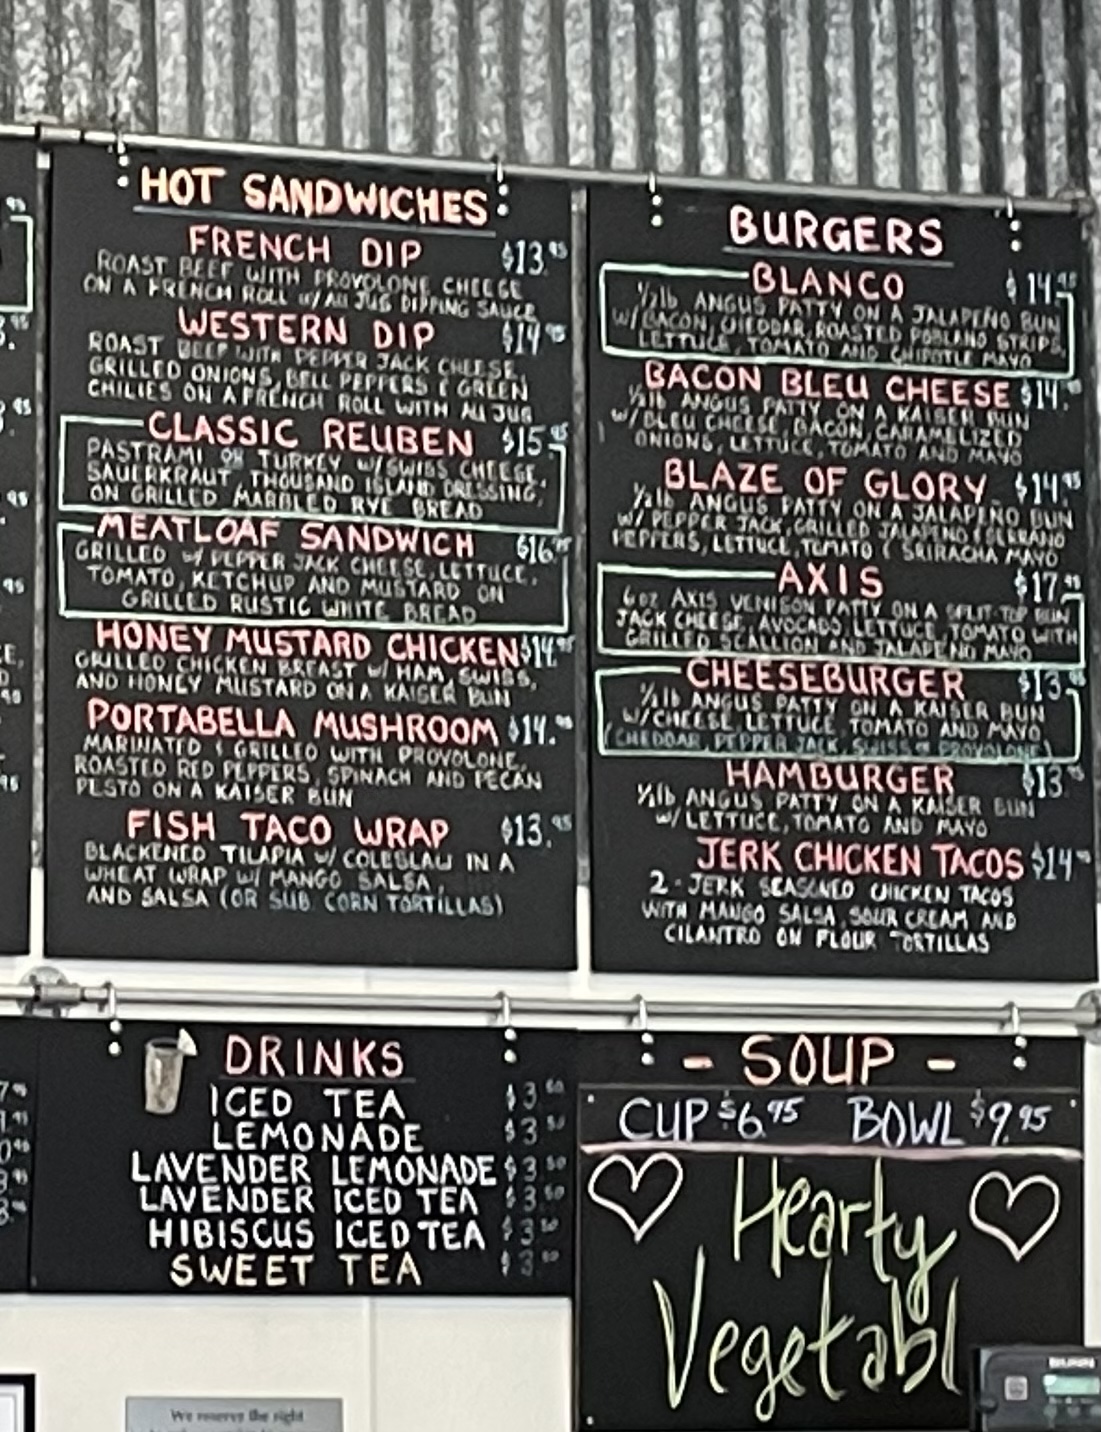 HOT SANDWICHES
FRENCH DIP $13.95
ROAST BEEF WITH PROVOLONE CHEESE
ON A FRENCH ROLL w/ AU JUS DIPPING SAUCE
WESTERN DIP $14.95
ROAST BEEF WITH PEPPER JACK CHEESE,
GRILLED ONIONS, BELL PEPPERS & GREEN
CHILIES ON A FRENCH ROLL WITH AU JUS
CLASSIC REUBEN $15.95
PASTRAMI OR TURKEY W/ SWISS CHEESE,
SAUERKRAUT, THOUSAND ISLAND DRESSING,
ON GRILLED MARBLED RYE BREAD
MEATLOAF SANDWICH $16.95
GRILLED w/ PEPPER JACK CHEESE, LETTUCE,
TOMATO, KETCHUP AND MUSTARD ON
GRILLED RUSTIC WHITE BREAD
HONEY MUSTARD CHICKEN $14.95
GRILLED CHICKEN BREAST w/ HAM, SWISS,
AND HONEY MUSTARD ON A KAISER BUN
PORTABELLA MUSHROOM $14.95
MARINATED & GRILLED WITH PROVOLONE,
ROASTED RED PEPPERS, SPINACH AND PECAN
PESTO ON A KAISER BUN
FISH TACO WRAP $13.95
BLACKENED TILAPIA w/ COLESLAW IN A
WHEAT WRAP W/ MANGO SALSA,
AND SALSA (OR SUB CORN TORTILLAS)
BURGERS
BLANCO $14.95
1/2lb ANGUS PATTY ON A JALAPEÑO BUN
W/ BACON, CHEDDAR, ROASTED POBLANO STRIPS,
LETTUCE, TOMATO AND CHIPOTLE MAYO
BACON BLEU CHEESE $14.95
1/2lb ANGUS PATTY ON A KAISER BUN
W/ BLEU CHEESE, BACON, CARAMELIZED
ONIONS, LETTUCE, TOMATO AND MAYO
BLAZE OF GLORY $14.95
1/2lb ANGUS PATTY ON A JALAPEÑO BUN
W/ PEPPER JACK, GRILLED JALAPEÑO & SERRANO
PEPPERS, LETTUCE, TOMATO & SRIRACHA MAYO
AXIS $17.95
6oz. AXIS VENISON PATTY ON A SPLIT-TOP BUN
JACK CHEESE, AVOCADO, LETTUCE, TOMATO WITH
GRILLED SCALLION AND JALAPEÑO MAYO
CHEESEBURGER $13.95
1/2lb ANGUS PATTY ON A KAISER BUN
W/ CHEESE, LETTUCE, TOMATO AND MAYO
(CHEDDAR, PEPPER JACK, SWISS OR PROVOLONE)
HAMBURGER $13.95
1/2lb ANGUS PATTY ON A KAISER BUN
W/ LETTUCE, TOMATO AND MAYO
JERK CHICKEN TACOS $14.95
2 - JERK SEASONED CHICKEN TACOS
WITH MANGO SALSA, SOUR CREAM AND
CILANTRO ON FLOUR TORTILLAS
DRINKS
ICED TEA $3.50
LEMONADE $3.50
LAVENDER LEMONADE $3.50
LAVENDER ICED TEA $3.50
HIBISCUS ICED TEA $3.50
SWEET TEA $3.50
- SOUP -
CUP $6.95 BOWL $9.95
Hearty
Vegetabl
We reserve the right